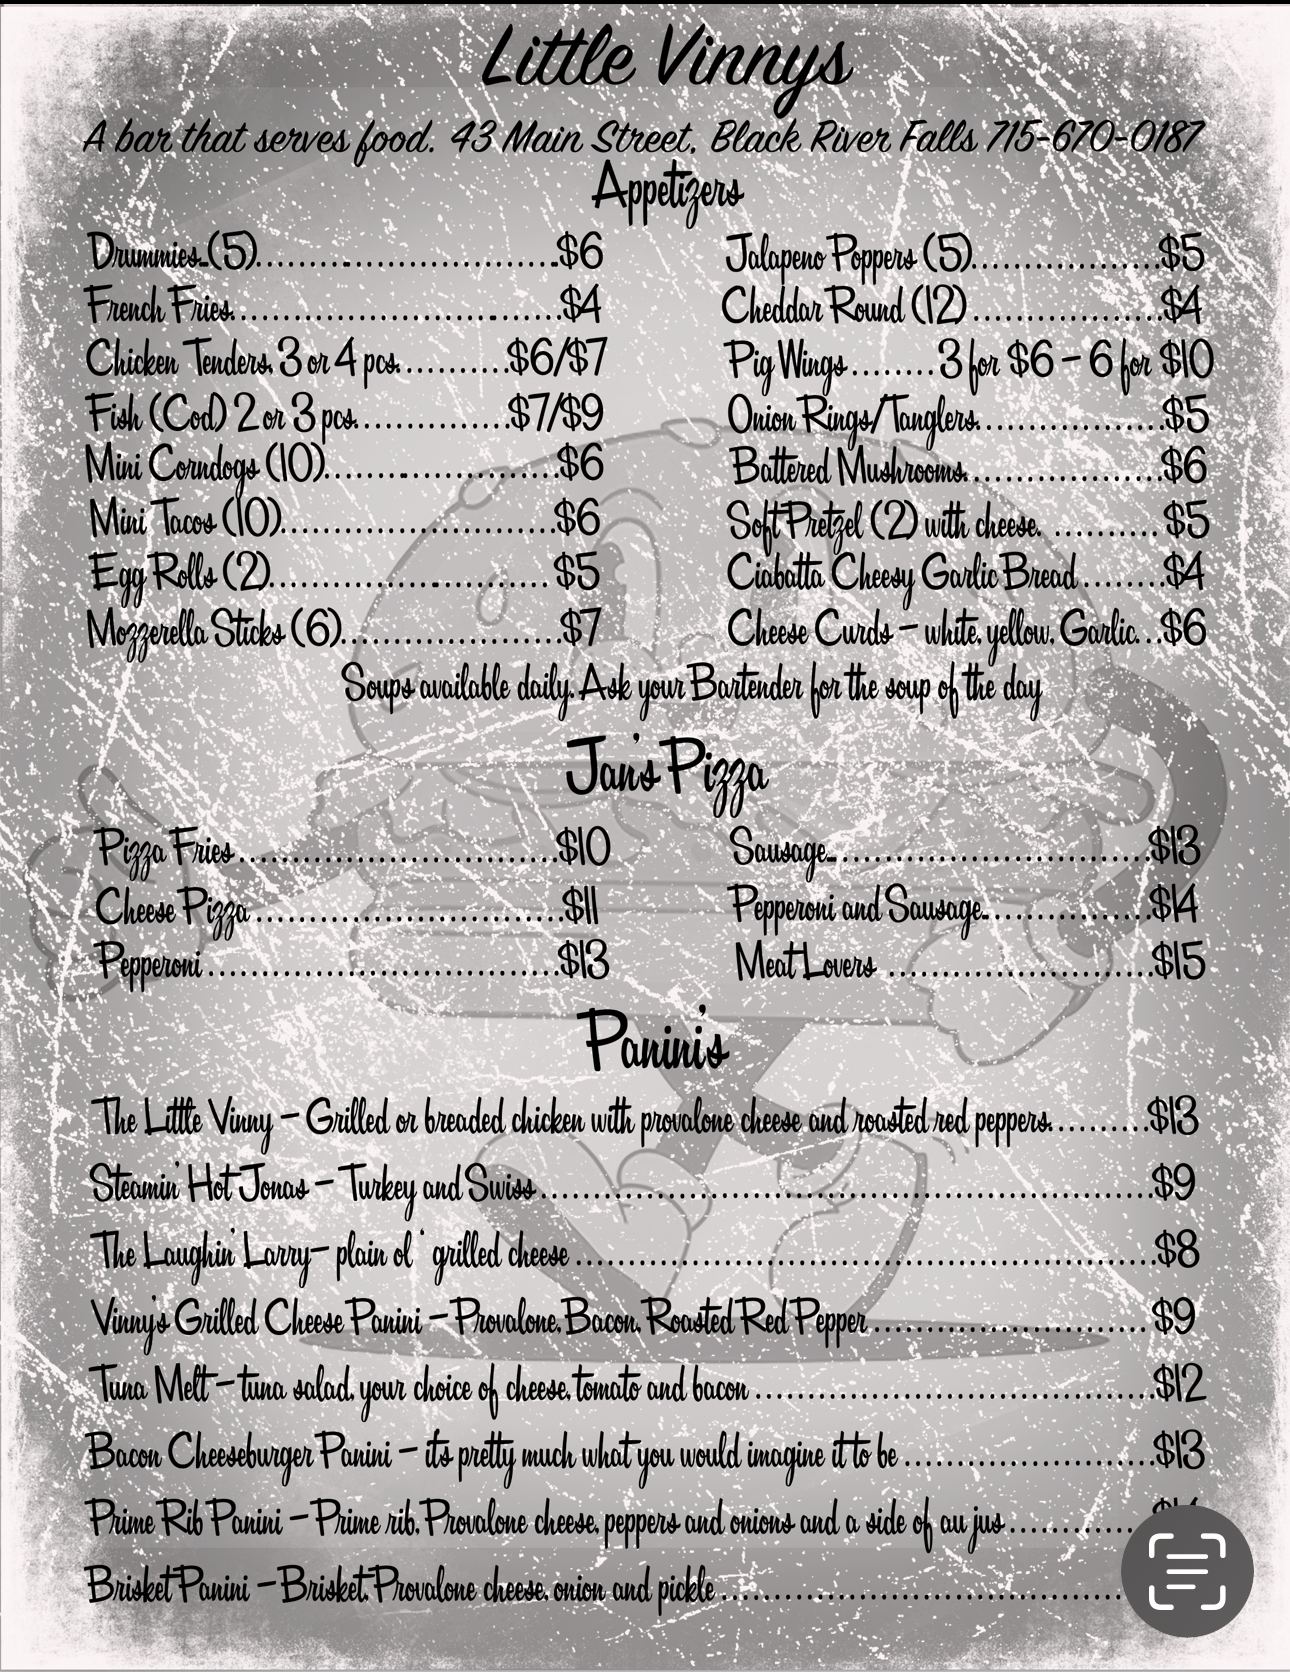 Little Vinnys
A bar that serves food. 43 Main Street, Black River Falls 715-670-0187
Appetizers
Drummies (5) $6
French Fries $4
Chicken Tenders, 3 or 4 pcs. $6/$7
Fish (Cod) 2 or 3 pcs. $7/$9
Mini Corndogs (10) $6
Mini Tacos (10) $6
Egg Rolls (2) $5
Mozzerella Sticks (6) $7
Jalapeno Poppers (5) $5
Cheddar Round (12) $4
Pig Wings 3 for $6 – 6 for $10
Onion Rings/Tanglers $5
Battered Mushrooms $6
Soft Pretzel (2) with cheese. $5
Ciabatta Cheesy Garlic Bread $4
Cheese Curds – white, yellow, Garlic $6
Soups available daily. Ask your Bartender for the soup of the day
Jan's Pizza
Pizza Fries $10
Cheese Pizza $11
Pepperoni $13
Sausage $13
Pepperoni and Sausage $14
Meat Lovers $15
Panini's
The Little Vinny – Grilled or breaded chicken with provalone cheese and roasted red peppers. $13
Steamin' Hot Jonas – Turkey and Swiss $9
The Laughin' Larry– plain ol ' grilled cheese $8
Vinny's Grilled Cheese Panini – Provalone, Bacon, Roasted Red Pepper $9
Tuna Melt – tuna salad, your choice of cheese, tomato and bacon $12
Bacon Cheeseburger Panini – it's pretty much what you would imagine it to be $13
Prime Rib Panini – Prime rib, Provalone cheese, peppers and onions and a side of au jus
Brisket Panini – Brisket, Provalone cheese, onion and pickle